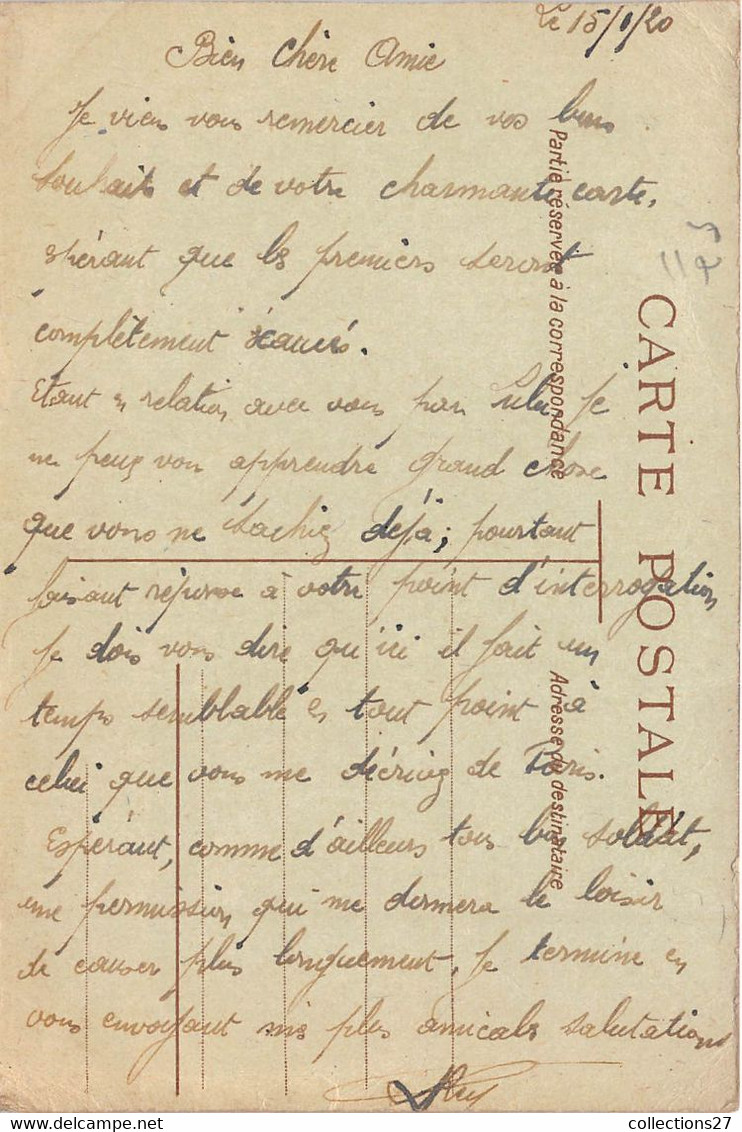 Le 15/1/20
Bien Chère Amie
Je viens vous remercier de vos bons
souhaits et de votre charmante carte,
espérant que les premiers seront
complètement exaucés.
Etant en relation avec vous par Lulu je
ne peux vous apprendre grand chose
que vous ne sachiez déjà; pourtant
faisant réponse à votre point d'interrogation
je dois vous dire qu'ici il fait un
temps semblable en tout point à
celui que vous me décriez de Paris.
Espérant, comme d'ailleurs tous bon soldat,
une permission qui me donnera le loisir
de causer plus longuement, je termine en
vous envoyant mes plus amicales salutations
CARTE POSTALE
Partie réservée à la correspondance
Adresse du destinataire
collections27